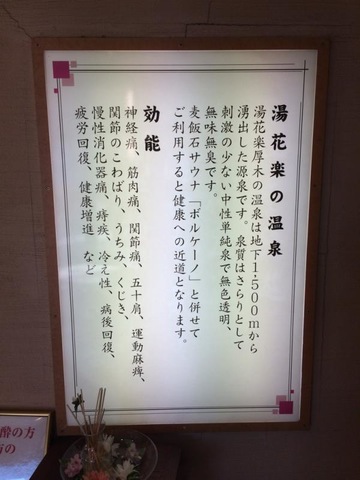 湯花楽の温泉
湯花楽厚木の温泉は地下1,500mから
湧出した源泉です。泉質はさらりとして
刺激の少ない中性単純泉で無色透明、
無味無臭です。
麦飯石サウナ「ボルケーノ」と併せて
ご利用すると健康への近道となります。
効能
神経痛、筋肉痛、関節痛、五十肩、運動麻痺、
関節のこわばり、うちみ、くじき、
慢性消化器病、痔疾、冷え性、病後回復、
疲労回復、健康増進 など
酔の方